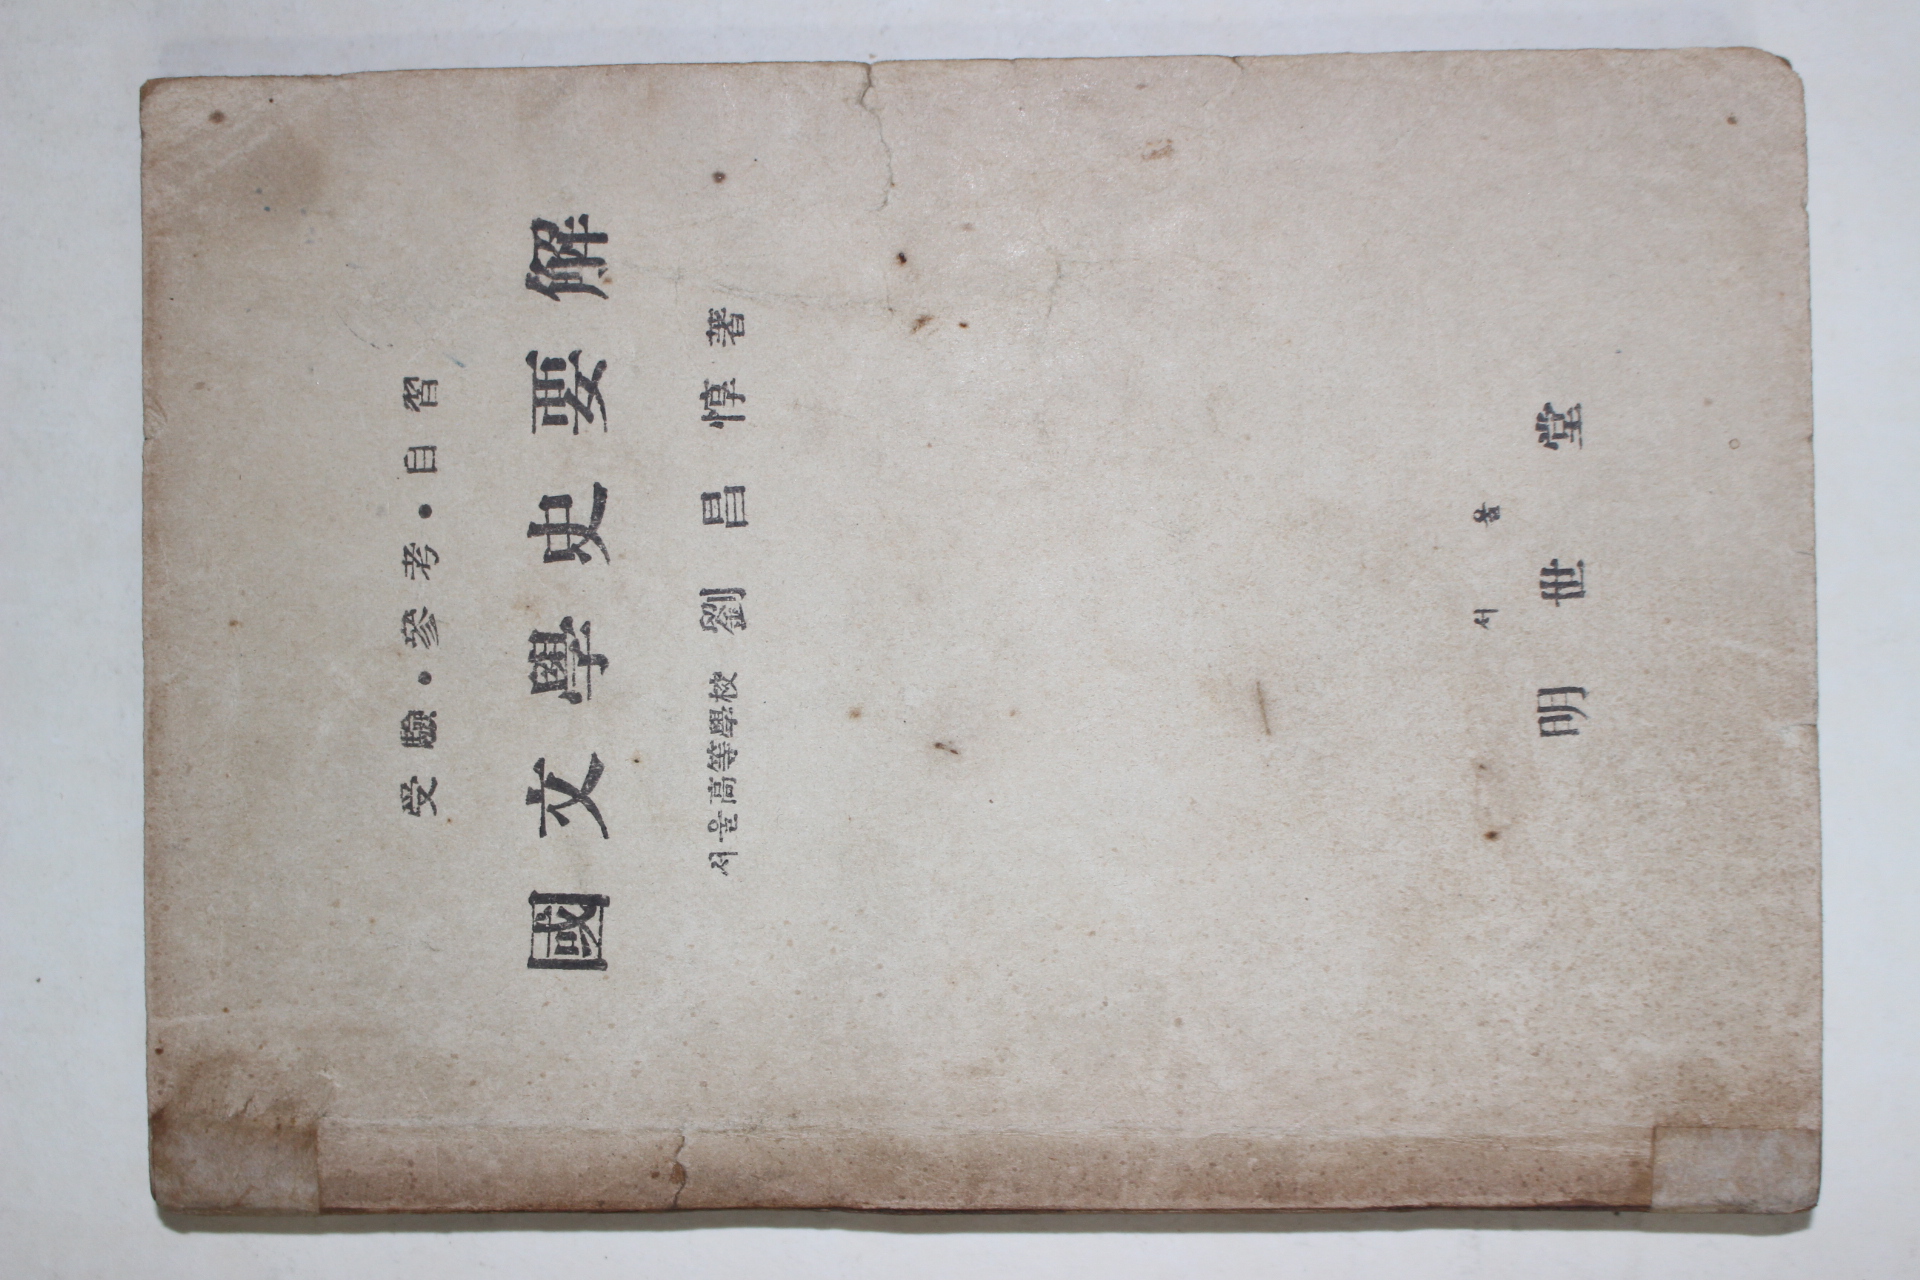 受驗·參考·自習
國文學史要解
서울高等學校 劉昌惇 著
서울
明世堂